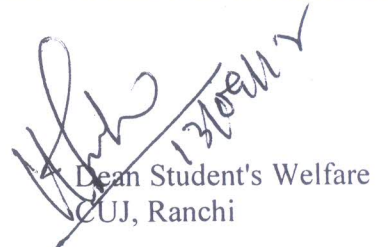 13/09/12
Dean Student's Welfare
CUJ, Ranchi